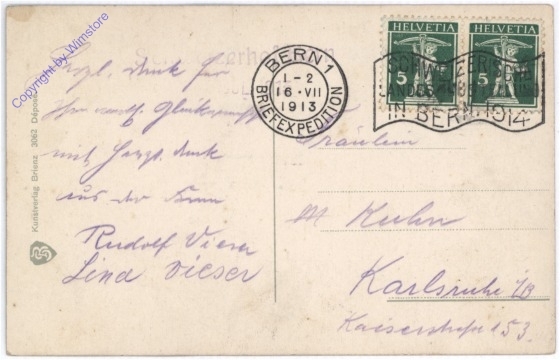 Copyright by Wimstore
Herzl. Dank für
Glückwunsch
mit Herzl. Dank
aus der
Rudolf Vieser
Lina Vieser
Kunstverlag Brienz 3062 Déposé
BERN 1
1-2
16·VII
1913
BRIEFEXPEDITION
HELVETIA HELVETIA
5 5
SCHWEIZERISCHE
LANDESAUSSTELLUNG
IN BERN 1914
Fräulein
M Kuhn
Karlsruhe i/B
Kaiserstraße 153